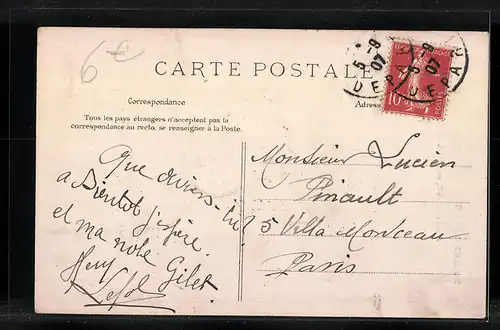 6€
CARTE POSTALE
Correspondance
Tous les pays étrangers n'acceptent pas la
correspondance au recto, se renseigner à la Poste.
Adres
5 -9
07
DEPA
5 -9
07
DEPA
10
Que
à Bientôt j'espère
et ma note Gilet
Monsieur Lucien
Pinault
5 Villa Monceau
Paris